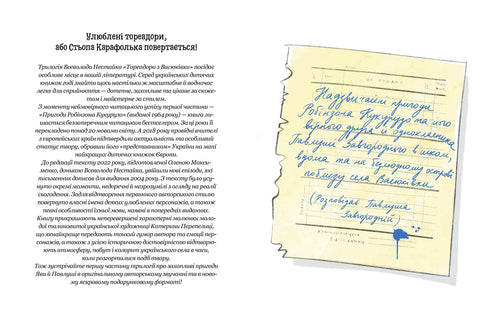 Улюблені тореадори,
або Стьопа Карафолька повертається!
Трилогія Всеволода Нестайка «Тореадори з Васюківки» посідає
особливе місце в нашій літературі. Серед українських дитячих
книжок годі знайти щось настільки ж масштабне й водночас
легке для сприйняття — дотепне, захопливе та цікаве за сюже-
том і майстерне за стилем.
З моменту неймовірного читацького успіху першої частини —
«Пригоди Робінзона Кукурузо» (видана 1964 року) — книга ли-
шається беззаперечним читацьким бестселером. За ці роки її
перекладено понад 20 мовами світу. А 2018 року провідні вчителі
з європейських країн підтвердили актуальність та особливий
статус твору, обравши його «представником» України на мапі
найкращих дитячих книжок Європи.
До редакції тексту 2022 року, підготовленої Оленою Макси-
менко, донькою Всеволода Нестайка, увійшли нові епізоди, які
письменник дотепив для видання 2004 року. З тексту було усу-
нуто окремі моменти, недоречні й незрозумілі з огляду на реалії
сьогодення. Задля відтворення первинного авторського стилю
повернуто власні імена деяких улюблених персонажів, а також
певні особливості їхньої мови, наявні в попередніх виданнях.
Книгу прикрашають неперевершені характерні малюнки моло-
дої талановитої української художниці Катерини Перепелиці,
що якнайкраще передають тонкий гумор автора та емоції пер-
сонажів, а також з усією історичною достовірністю відтворю-
ють атмосферу, побут і колорит українського села в часи,
коли розгорталися події твору.
Тож зустрічайте першу частину трилогії про захопливі пригоди
Яви й Павлуші в оригінальному авторському звучанні та в ново-
му яскравому подарунковому форматі!
Надзвичайні пригоди
Робінзона Кукурузо та його
вірного друга і однокласника
Павлуші Завгороднього в школі,
вдома та на безлюдному острові
поблизу села Васюківки
(Розповідає Павлуша
Завгородній)